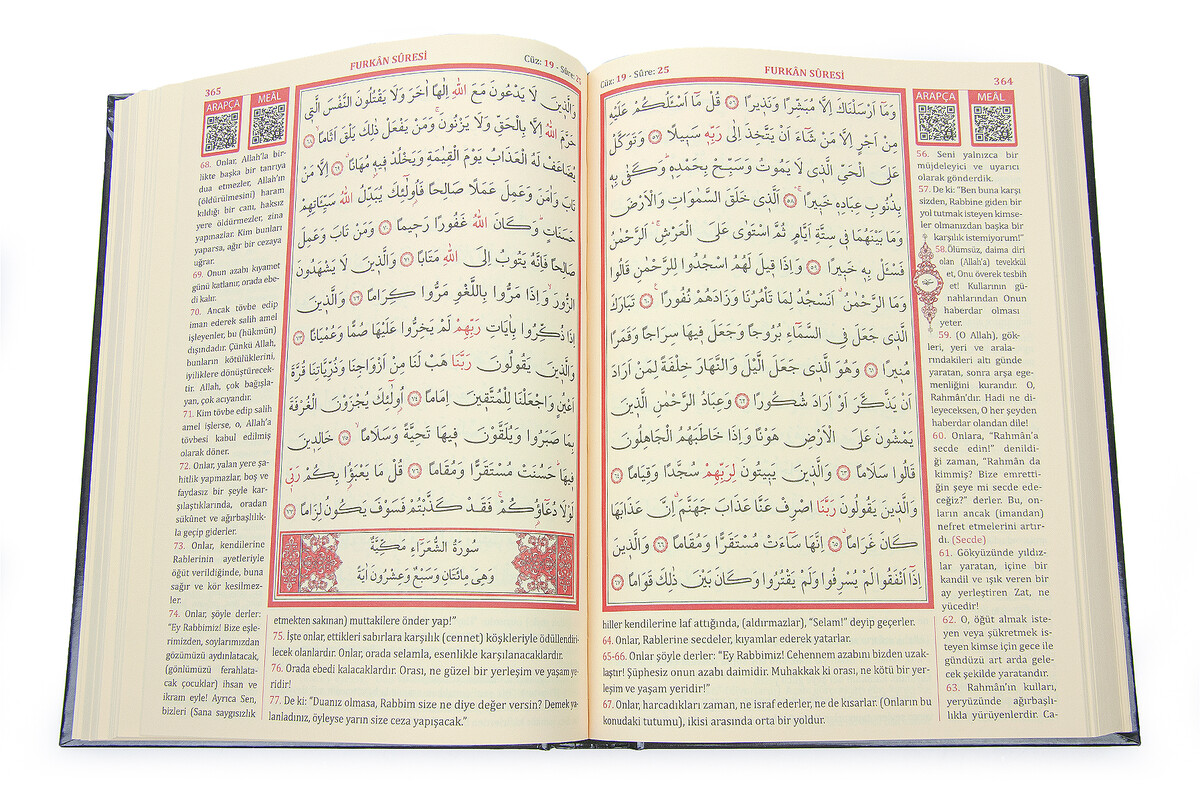 FURKÂN SÛRESİ
Cüz: 19 - Sûre: 25
364
ARAPÇA MEÂL
وَمَٓا اَرْسَلْنَاكَ اِلَّا مُبَشِّرًا وَنَذٖيرًا ﴿٥٦﴾ قُلْ مَٓا اَسْـَٔلُكُمْ عَلَيْهِ
مِنْ اَجْرٍ اِلَّا مَنْ شَٓاءَ اَنْ يَتَّخِذَ اِلٰى رَبِّهٖ سَبٖيلًا ﴿٥٧﴾ وَتَوَكَّلْ
عَلَى الْحَيِّ الَّذٖي لَا يَمُوتُ وَسَبِّحْ بِحَمْدِهٖ وَكَفٰى بِهٖ
بِذُنُوبِ عِبَادِهٖ خَبٖيرًا ﴿٥٨﴾ اَلَّذٖي خَلَقَ السَّمٰوَاتِ وَالْاَرْضَ
وَمَا بَيْنَهُمَا فٖي سِتَّةِ اَيَّامٍ ثُمَّ اسْتَوٰى عَلَى الْعَرْشِ اَلرَّحْمٰنُ
فَسْـَٔلْ بِهٖ خَبٖيرًا ﴿٥٩﴾ وَاِذَا قٖيلَ لَهُمُ اسْجُدُوا لِلرَّحْمٰنِ قَالُوا
وَمَا الرَّحْمٰنُ اَنَسْجُدُ لِمَا تَأْمُرُنَا وَزَادَهُمْ نُفُورًا ﴿٦٠﴾ تَبَارَكَ
الَّذٖي جَعَلَ فِي السَّمَٓاءِ بُرُوجًا وَجَعَلَ فٖيهَا سِرَاجًا وَقَمَرًا
مُنٖيرًا ﴿٦١﴾ وَهُوَ الَّذٖي جَعَلَ الَّيْلَ وَالنَّهَارَ خِلْفَةً لِمَنْ اَرَادَ
اَنْ يَذَّكَّرَ اَوْ اَرَادَ شُكُورًا ﴿٦٢﴾ وَعِبَادُ الرَّحْمٰنِ الَّذٖينَ
يَمْشُونَ عَلَى الْاَرْضِ هَوْنًا وَاِذَا خَاطَبَهُمُ الْجَاهِلُونَ
قَالُوا سَلَامًا ﴿٦٣﴾ وَالَّذٖينَ يَبٖيتُونَ لِرَبِّهِمْ سُجَّدًا وَقِيَامًا ﴿٦٤﴾
وَالَّذٖينَ يَقُولُونَ رَبَّنَا اصْرِفْ عَنَّا عَذَابَ جَهَنَّمَ اِنَّ عَذَابَهَا
كَانَ غَرَامًا ﴿٦٥﴾ اِنَّهَا سَٓاءَتْ مُسْتَقَرًّا وَمُقَامًا ﴿٦٦﴾ وَالَّذٖينَ
اِذَٓا اَنْفَقُوا لَمْ يُسْرِفُوا وَلَمْ يَقْتُرُوا وَكَانَ بَيْنَ ذٰلِكَ قَوَامًا ﴿٦٧﴾
56. Seni yalnızca bir
müjdeleyici ve uyarıcı
olarak gönderdik.
57. De ki: "Ben buna karşı
sizden, Rabbine giden bir
yol tutmak isteyen kimse-
ler olmanızdan başka bir
karşılık istemiyorum!"
58.Ölümsüz, daima diri
olan (Allah'a) tevekkül
et, Onu överek tesbih
et! Kullarının gü-
nahlarından Onun
haberdar olması
yeter.
59. (O Allah), gök-
leri, yeri ve arala-
rındakileri altı günde
yaratan, sonra arşa ege-
menliğini kurandır. O,
Rahmân'dır. Hadi ne di-
leyeceksen, O her şeyden
haberdar olandan dile!
60. Onlara, "Rahmân'a
secde edin!" denildi-
ği zaman, "Rahmân da
kimmiş? Bize emretti-
ğin şeye mi secde ede-
ceğiz?" derler. Bu, on-
ların ancak (imandan)
nefret etmelerini artır-
dı. (Secde)
61. Gökyüzünde yıldız-
lar yaratan, içine bir
kandil ve ışık veren bir
ay yerleştiren Zat, ne
yücedir!
62. O, öğüt almak iste-
yen veya şükretmek is-
teyen kimse için gece ile
gündüzü art arda gele-
cek şekilde yaratandır.
63. Rahmân'ın kulları,
yeryüzünde ağırbaşlı-
lıkla yürüyenlerdir. Ca-
hiller kendilerine laf attığında, (aldırmazlar), "Selam!" deyip geçerler.
64. Onlar, Rablerine secdeler, kıyamlar ederek yatarlar.
65-66. Onlar şöyle derler: "Ey Rabbimiz! Cehennem azabını bizden uzak-
laştır! Şüphesiz onun azabı daimidir. Muhakkak ki orası, ne kötü bir yer-
leşim ve yaşam yeridir!"
67. Onlar, harcadıkları zaman, ne israf ederler, ne de kısarlar. (Onların bu
konudaki tutumu), ikisi arasında orta bir yoldur.
365
FURKÂN SÛRESİ
Cüz: 19 - Sûre: 25
ARAPÇA MEÂL
وَالَّذٖينَ لَا يَدْعُونَ مَعَ اللّٰهِ اِلٰهًا اٰخَرَ وَلَا يَقْتُلُونَ النَّفْسَ الَّتٖي
حَرَّمَ اللّٰهُ اِلَّا بِالْحَقِّ وَلَا يَزْنُونَ وَمَنْ يَفْعَلْ ذٰلِكَ يَلْقَ اَثَامًا ﴿٦٨﴾
يُضَاعَفْ لَهُ الْعَذَابُ يَوْمَ الْقِيٰمَةِ وَيَخْلُدْ فٖيهٖ مُهَانًا ﴿٦٩﴾ اِلَّا مَنْ
تَابَ وَاٰمَنَ وَعَمِلَ عَمَلًا صَالِحًا فَاُولٰٓئِكَ يُبَدِّلُ اللّٰهُ سَيِّـَٔاتِهِمْ
حَسَنَاتٍ وَكَانَ اللّٰهُ غَفُورًا رَحٖيمًا ﴿٧٠﴾ وَمَنْ تَابَ وَعَمِلَ
صَالِحًا فَاِنَّهُ يَتُوبُ اِلَى اللّٰهِ مَتَابًا ﴿٧١﴾ وَالَّذٖينَ لَا يَشْهَدُونَ
الزُّورَ وَاِذَا مَرُّوا بِاللَّغْوِ مَرُّوا كِرَامًا ﴿٧٢﴾ وَالَّذٖينَ
اِذَا ذُكِّرُوا بِاٰيَاتِ رَبِّهِمْ لَمْ يَخِرُّوا عَلَيْهَا صُمًّا وَعُمْيَانًا ﴿٧٣﴾
وَالَّذٖينَ يَقُولُونَ رَبَّنَا هَبْ لَنَا مِنْ اَزْوَاجِنَا وَذُرِّيَّاتِنَا قُرَّةَ
اَعْيُنٍ وَاجْعَلْنَا لِلْمُتَّقٖينَ اِمَامًا ﴿٧٤﴾ اُولٰٓئِكَ يُجْزَوْنَ الْغُرْفَةَ
بِمَا صَبَرُوا وَيُلَقَّوْنَ فٖيهَا تَحِيَّةً وَسَلَامًا ﴿٧٥﴾ خَالِدٖينَ
فٖيهَا حَسُنَتْ مُسْتَقَرًّا وَمُقَامًا ﴿٧٦﴾ قُلْ مَا يَعْبَؤُا بِكُمْ رَبّٖي
لَوْلَا دُعَٓاؤُكُمْ فَقَدْ كَذَّبْتُمْ فَسَوْفَ يَكُونُ لِزَامًا ﴿٧٧﴾
سُورَةُ الشُّعَرَٓاءِ مَكِّيَّةٌ
وَهِيَ مِائَتَانِ وَسَبْعٌ وَعِشْرُونَ اٰيَةً
68. Onlar, Allah'la bir-
likte başka bir tanrıya
dua etmezler, Allah'ın
(öldürülmesini) haram
kıldığı bir canı, haksız
yere öldürmezler, zina
yapmazlar. Kim bunları
yaparsa, ağır bir cezaya
uğrar.
69. Onun azabı kıyamet
günü katlanır, orada ebe-
di kalır.
70. Ancak tövbe edip
iman ederek salih amel
işleyenler, bu (hükmün)
dışındadır. Çünkü Allah,
bunların kötülüklerini,
iyiliklere dönüştürecek-
tir. Allah, çok bağışla-
yan, çok acıyandır.
71. Kim tövbe edip salih
amel işlerse, o, Allah'a
tövbesi kabul edilmiş
olarak döner.
72. Onlar, yalan yere şa-
hitlik yapmazlar, boş ve
faydasız bir şeyle kar-
şılaştıklarında, oradan
sükûnet ve ağırbaşlılık-
la geçip giderler.
73. Onlar, kendilerine
Rablerinin ayetleriyle
öğüt verildiğinde, buna
sağır ve kör kesilmez-
ler.
74. Onlar, şöyle derler:
"Ey Rabbimiz! Bize eşle-
rimizden, soylarımızdan
gözümüzü aydınlatacak,
(gönlümüzü ferahlata-
cak çocuklar) ihsan ve
ikram eyle! Ayrıca Sen,
bizleri (Sana saygısızlık
etmekten sakınan) muttakilere önder yap!"
75. İşte onlar, ettikleri sabırlara karşılık (cennet) köşkleriyle ödüllendiri-
lecek olanlardır. Onlar, orada selamla, esenlikle karşılanacaklardır.
76. Orada ebedi kalacaklardır. Orası, ne güzel bir yerleşim ve yaşam ye-
ridir!
77. De ki: "Duanız olmasa, Rabbim size ne diye değer versin? Demek ya-
lanladınız, öyleyse yarın size ceza yapışacak."